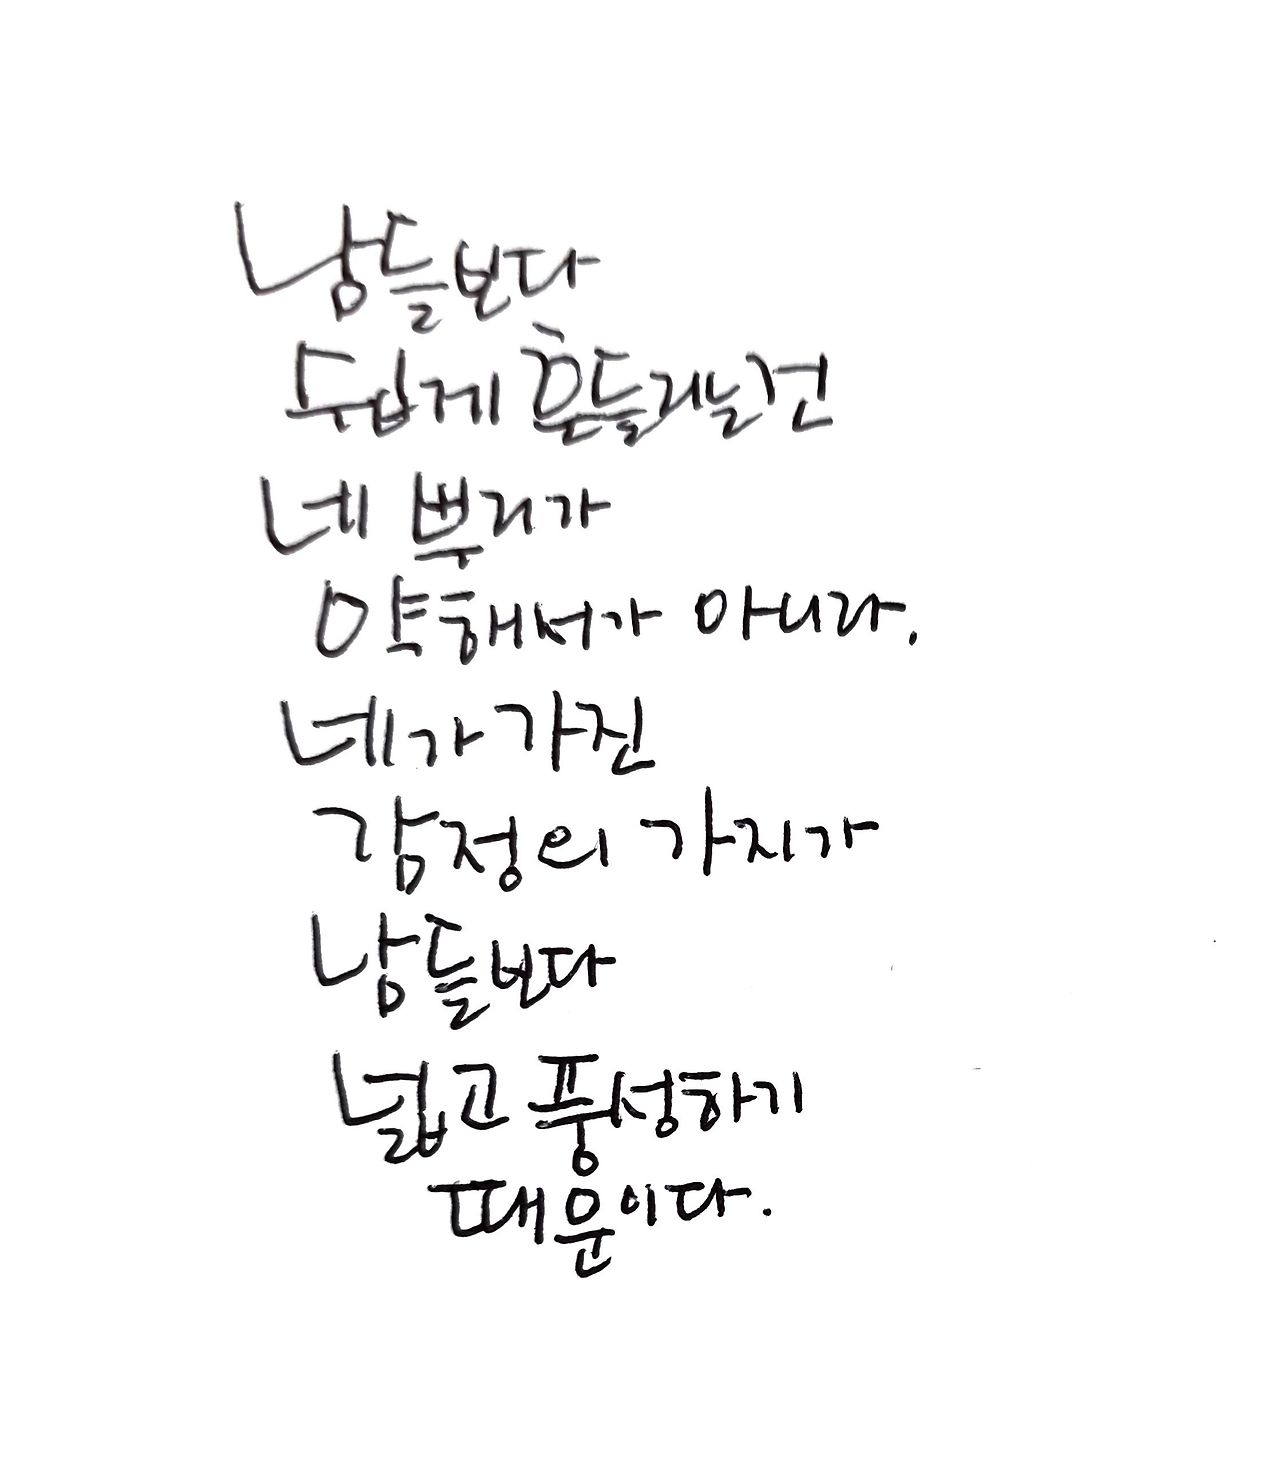 남들보다
흔들리는 건
네 뿌리가
약해서가 아니라.
네가 가진
감정의 가지가
남들보다
넓고 풍성하기
때문이다.